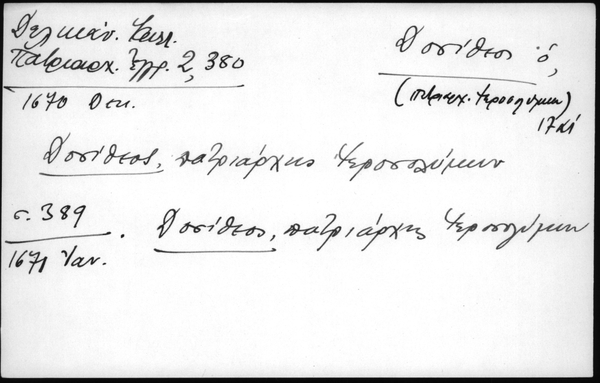 Δελικάν. Καλλ.
Πατριαρχ. Ἔγγρ. 2, 380
1670 Δεκ.
Δοσίθεος ὁ,
(πατριαρχ. Ἱεροσολύμων)
17 αἰ
Δοσίθεος, πατριάρχης Ἱεροσολύμων
σ. 389
1671 Ἰαν.
Δοσίθεος, πατριάρχης Ἱεροσολύμων